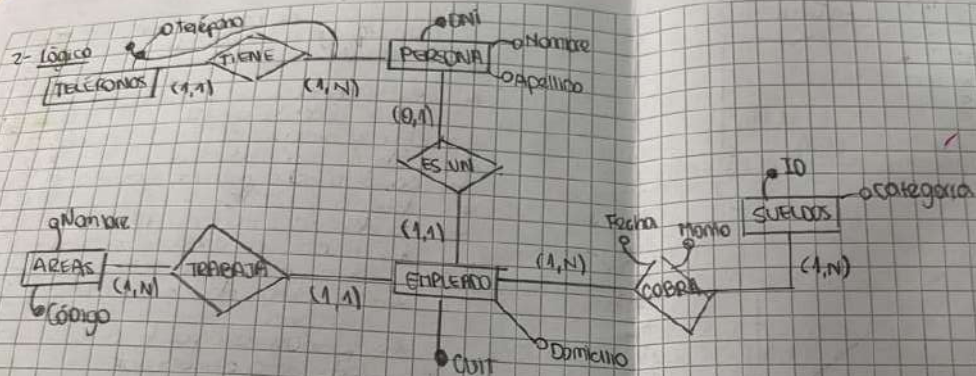 2- Lógico
Teléfono
TIENE
TELÉFONOS
(1,1)
(1,N)
DNI
PERSONA
Nombre
Apellido
(0,1)
ES UN
(1,1)
Nombre
AREAS
Código
(1,N)
TRABAJA
(1,1)
EMPLEADO
CUIT
Domicilio
(1,N)
Fecha
Monto
COBRA
(1,N)
ID
SUELDOS
Categoría